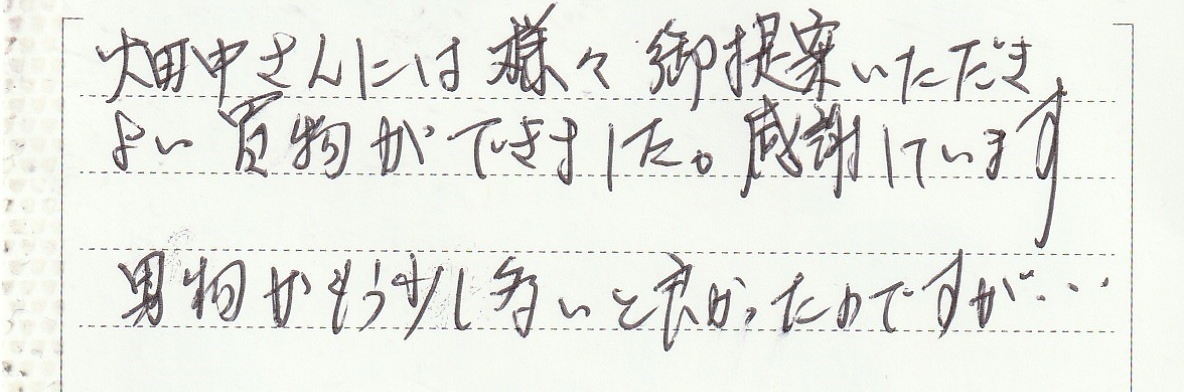 畑中さんには様々御提案いただき
よい買物ができました。感謝しています
男物がもう少し多いと良かったのですが…